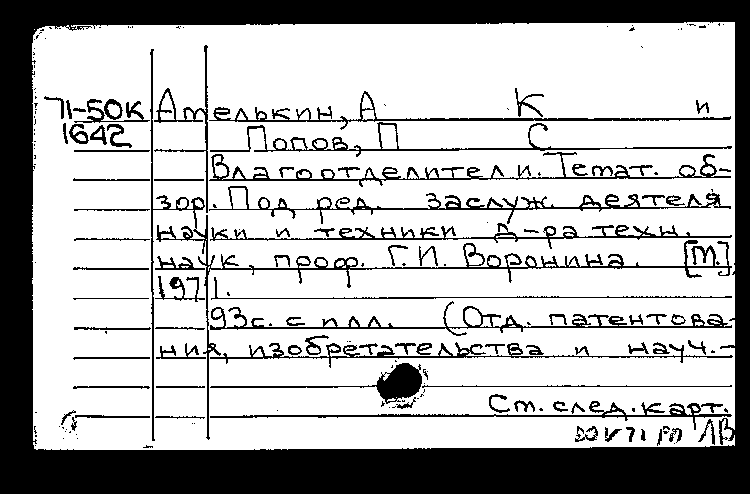 71-50K Амелькин, А К и
1642 Попов, П С
Влагоотделители. Темат. об-
зор. Под ред. заслуж. деятеля
науки и техники д-ра техн.
наук, проф. Г.И. Воронина. [М.],
1971.
93с. с илл. (Отд. патентова-
ния, изобретательства и науч.-
См. след. карт.